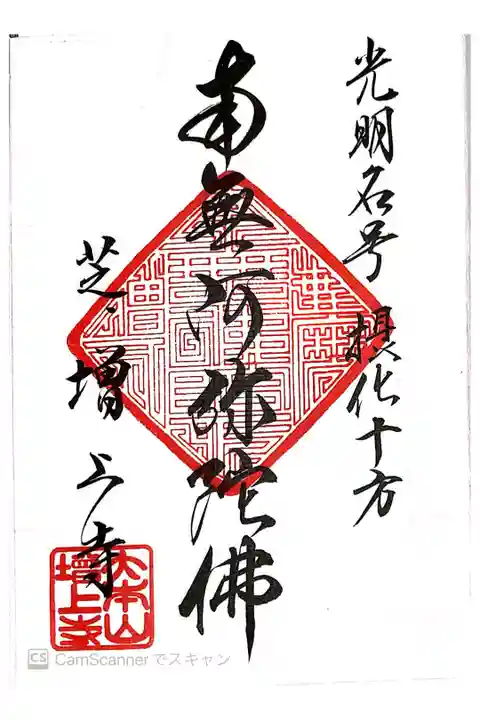 光明名号 摂化十方
南無阿弥陀佛
芝、増上寺
大本山
増上寺
CS CamScanner でスキャン